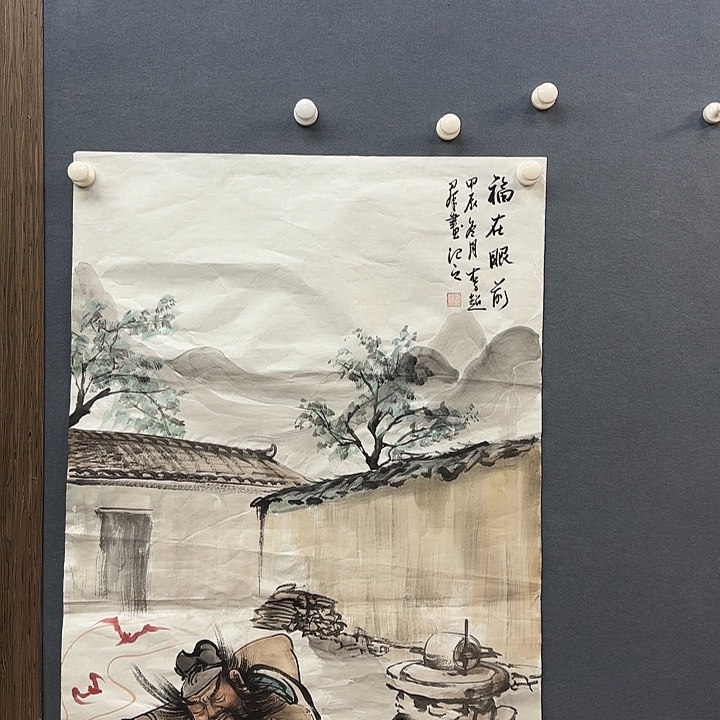 福在眼前
甲辰冬月李超
畫记之